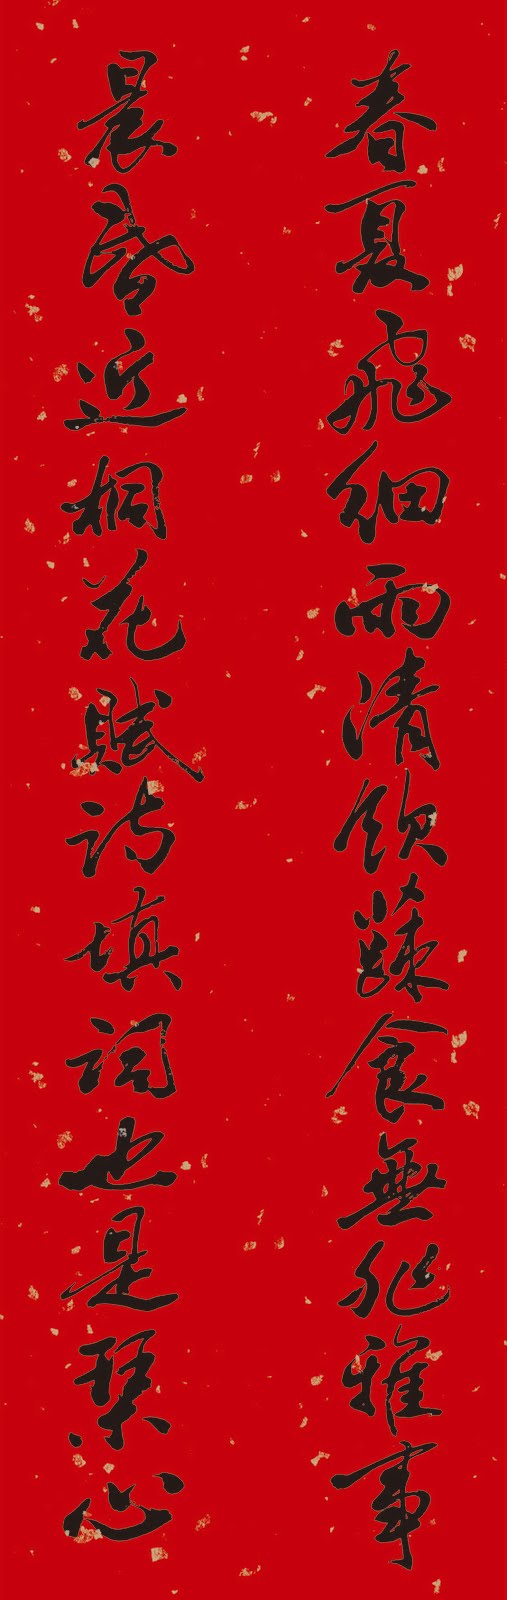 春夏飛細雨清飲蔬食無非雅事
晨昏近桐花賦诗填詞也是琴心